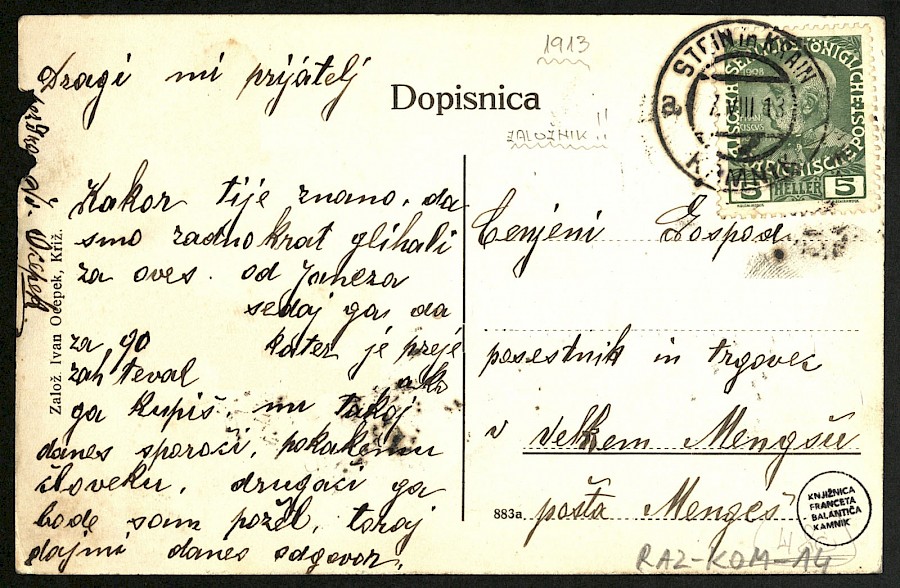 1913
Dragi mi prijatelj
Dopisnica
ZALOŽNIK!!
STEIN in KRAIN
a
7.VIII.13
KAMNIK
1908
5 HELLER 5
Kakor tije znano, da
smo zadnokrat glihali
za oves. od Janeza
sedaj ga, da
za 90 kater je preje
zahteval ako
ga kupiš, mu takoj
danes sporoči, po kakemu
človeku, drugači ga
bode sam požel, toraj
dajmi danes odgovor.
Založ. Ivan Ocepek, Križ.
Cenjeni Gospod
posestnik in trgovec
v Velkem Mengšu
pošta Mengeš
883a
KNJIŽNICA
FRANCETA
BALANTIČA
KAMNIK
RAZ-KOM-14